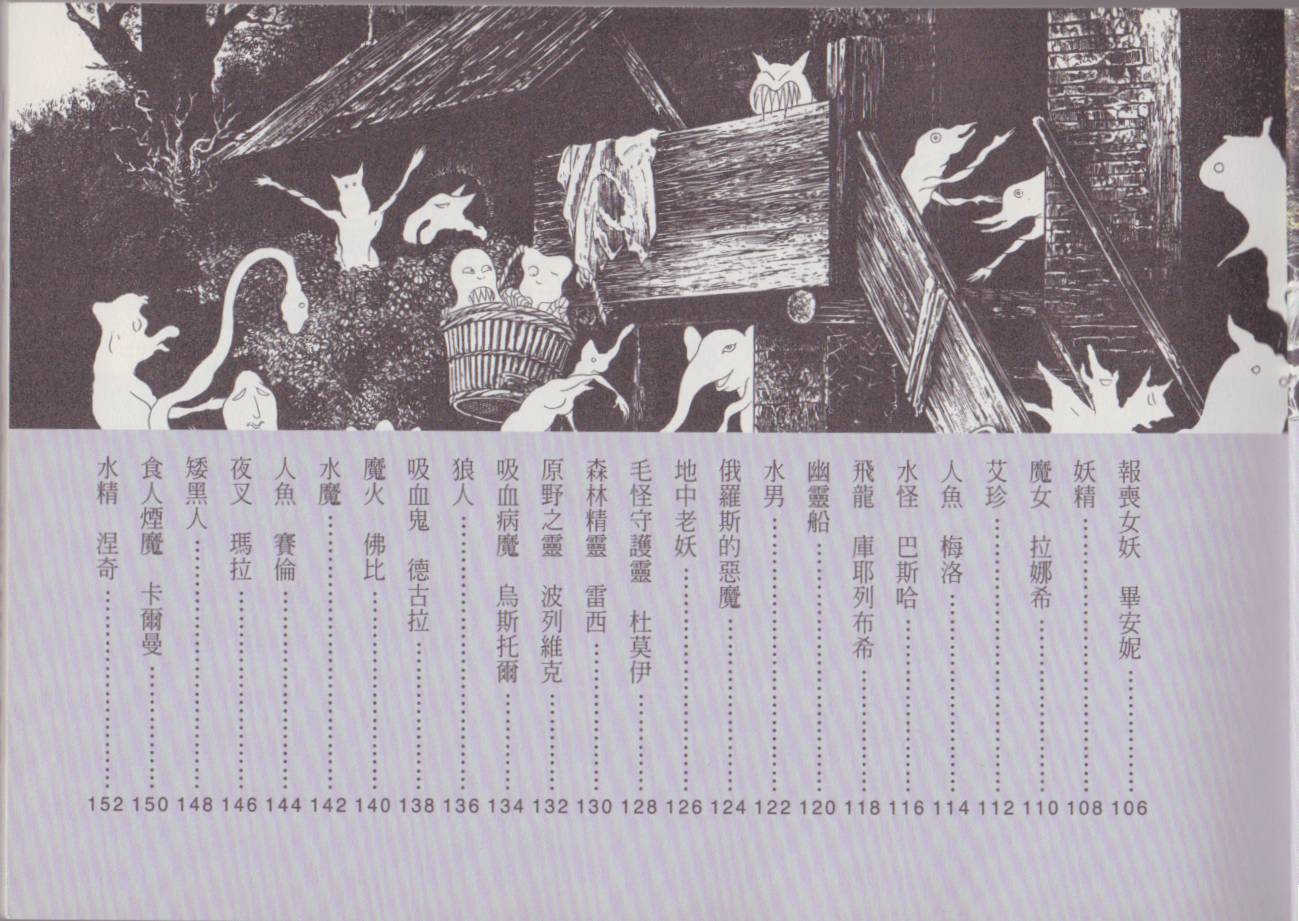 報喪女妖 畢安妮 106
妖精 108
魔女 拉娜希 110
艾珍 112
人魚 梅洛 114
水怪 巴斯哈 116
飛龍 庫耶列布希 118
幽靈船 120
水男 122
俄羅斯的惡魔 124
地中老妖 126
毛怪守護靈 杜莫伊 128
森林精靈 雷西 130
原野之靈 波列維克 132
吸血病魔 烏斯托爾 134
狼人 136
吸血鬼 德古拉 138
魔火 佛比 140
水魔 142
人魚 賽倫 144
夜叉 瑪拉 146
矮黑人 148
食人煙魔 卡爾曼 150
水精 涅奇 152